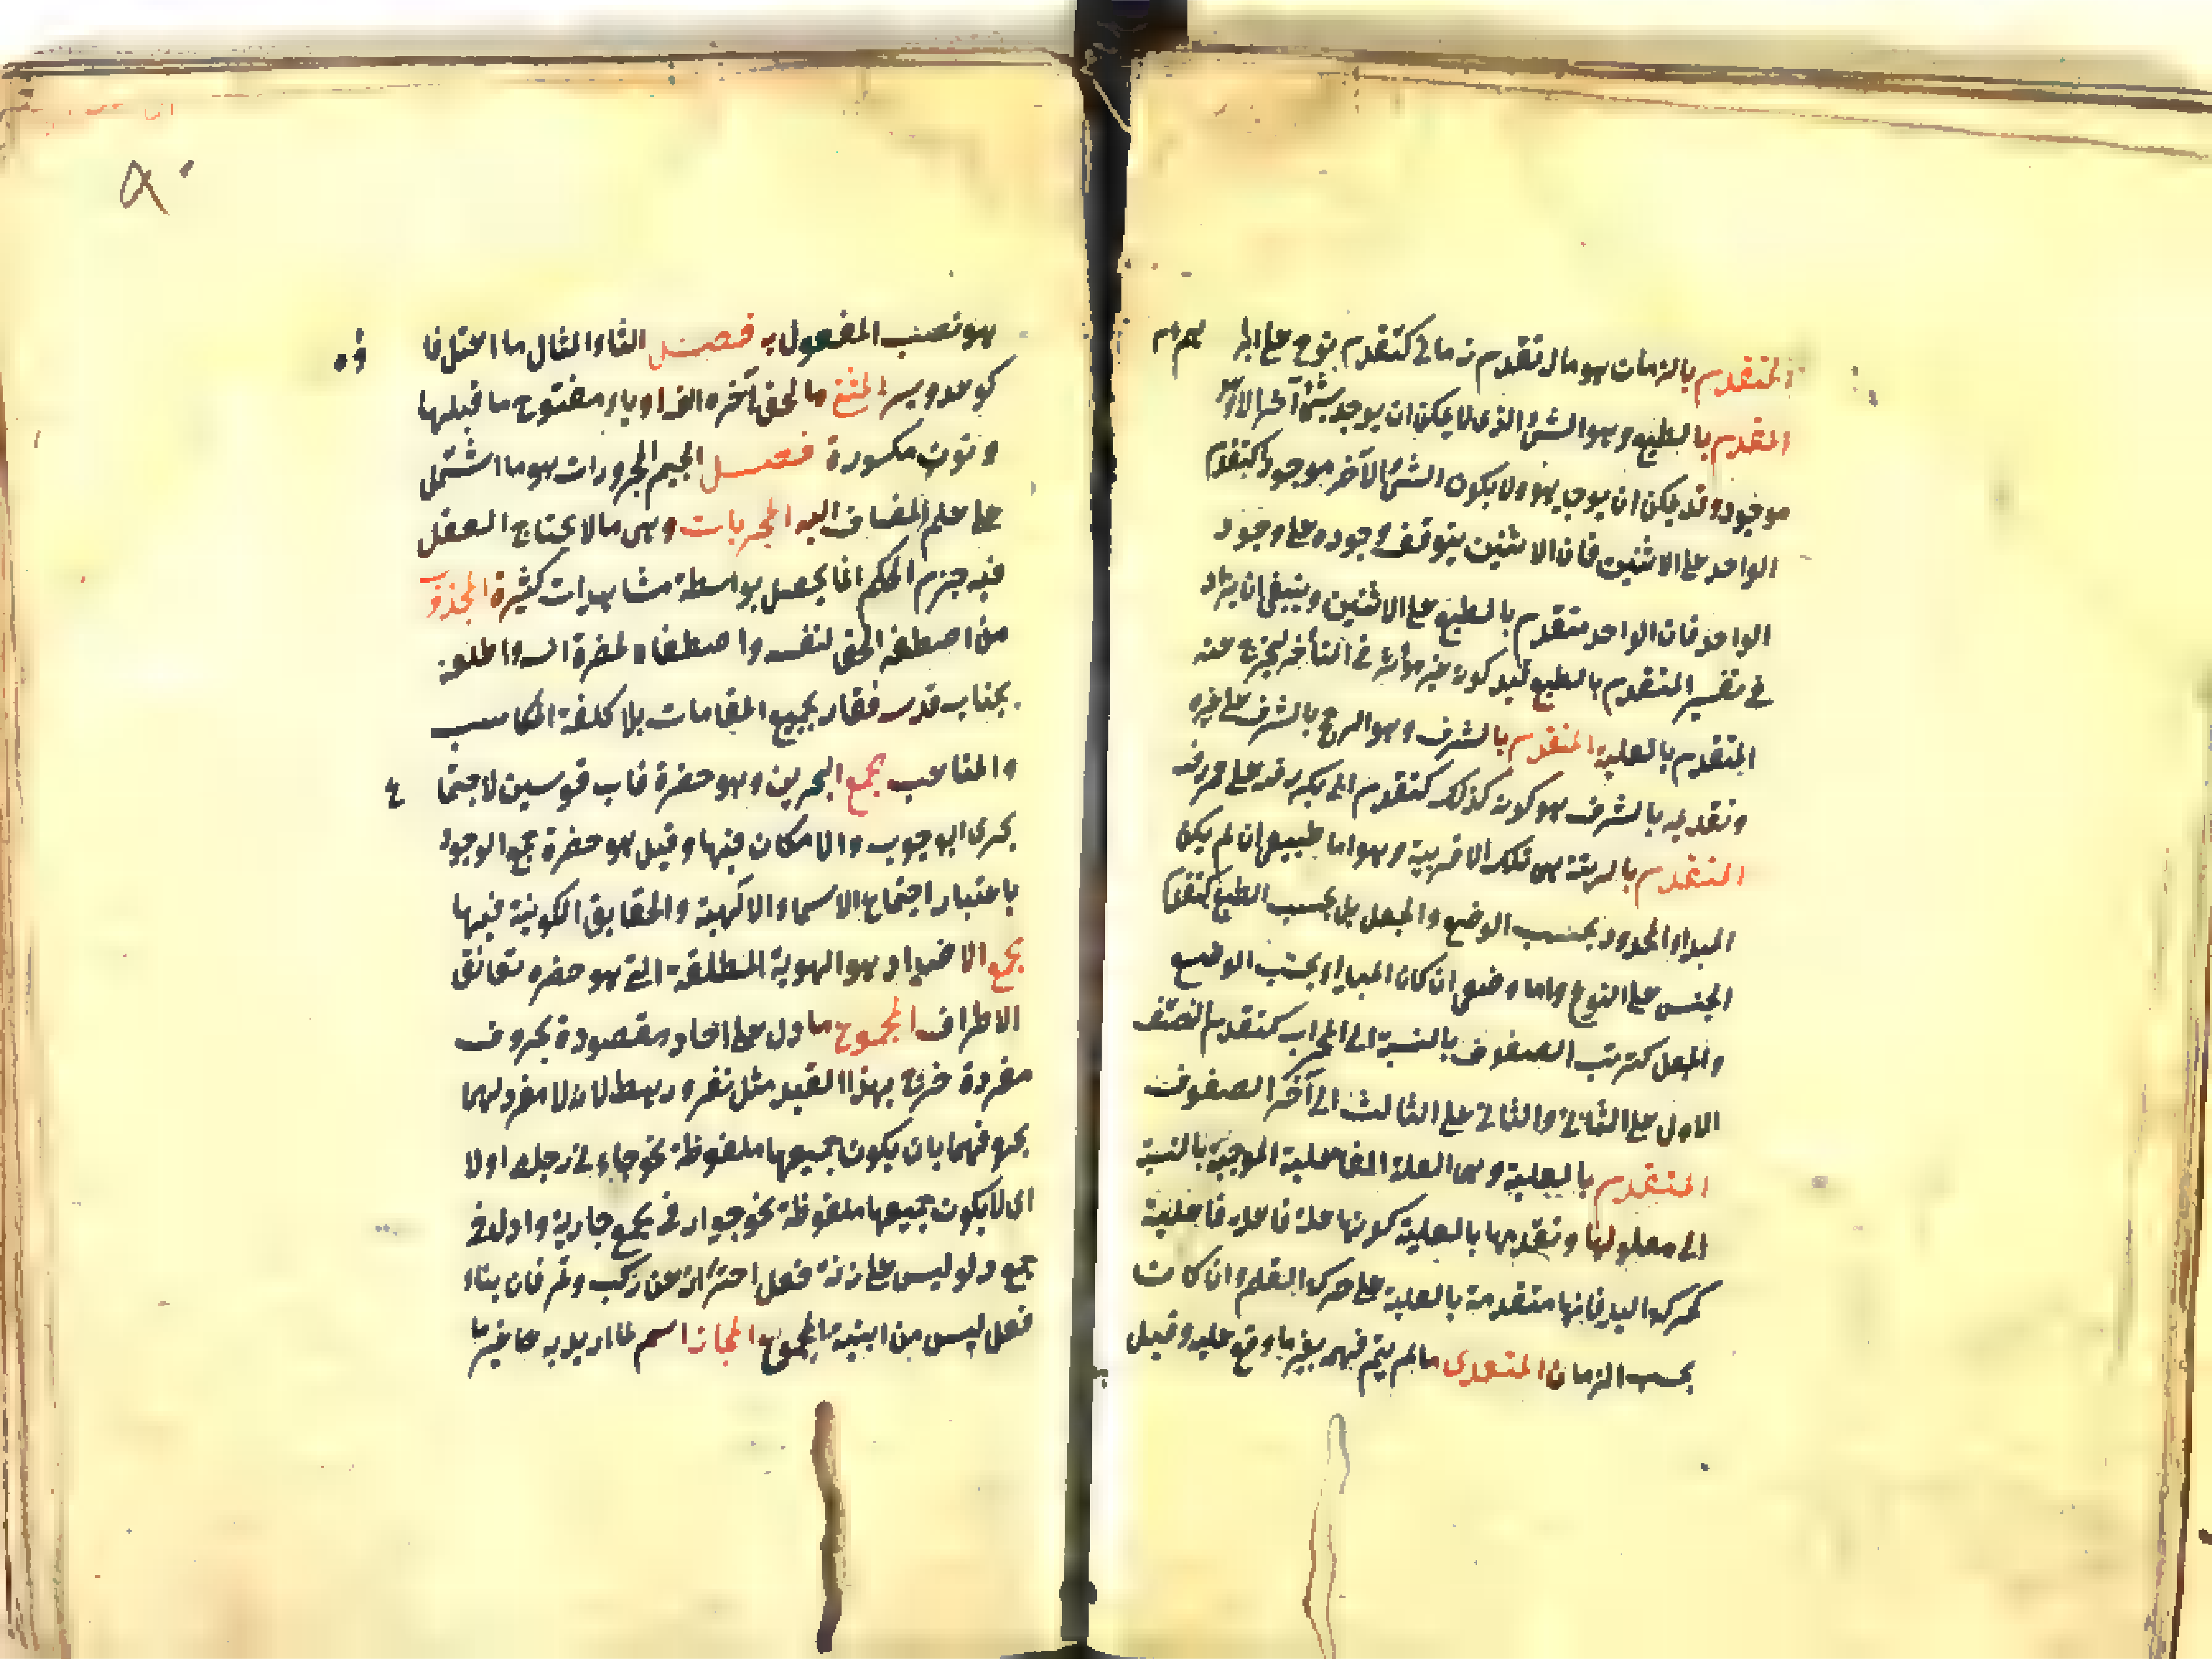 المتقدم بالزمان هو ماله تقدم زماني كتقدم نوح على ابراهيم
المتقدم بالطبع وهو الشئ الذى لا يمكن ان يوجد شئ آخر الا وهو
موجود وقد يمكن ان يوجد هو ولا يكون الشئ الآخر موجودا كتقدم
الواحد على الاثنين فان الاثنين يتوقف وجوده على وجود
الواحد فان الواحد متقدم بالطبع على الاثنين وينبغى ان يزاد
فى تفسير المتقدم بالطبع قيد كونه غير مؤثر فى المتأخر ليخرج عنه
المتقدم بالعلية المتقدم بالشرف وهو الراجح بالشرف على غيره
وتقدمه بالشرف هو كونه كذلك كتقدم ابى بكر رضه على عمر رضه
المتقدم بالرتبة هى تلك الاقربية وهو اما طبيعى ان لم يكن
المبدا والمحدود بحسب الوضع والجعل بل بحسب الطبع كتقدم
الجنس على النوع واما وضعى ان كان المبدا بحسب الوضع
والجعل كترتب الصفوف بالنسبة الى المحراب كتقدم الصف
الاول على الثانى والثانى على الثالث الى آخر الصفوف
المتقدم بالعلية وهى العلة الفاعلية الموجبة بالنسبة
الى معلولها وتقدمها بالعلية كونها علة فاعلة فاعلية
كحركة اليد فانها متقدمة بالعلية على حركة القلم وان كانت
بحسب الزمان المتعدى ما لم يتم فهمه بغير ما وقع عليه وقيل
هو نصب المفعول به فصل الثاء المثال ما اعتل فاؤه
كوعد ويسر المثنى ما لحق آخره الف او ياء مفتوح ما قبلها
ونون مكسورة فصل الجيم المجرورات هو ما اشتمل
على علم المضاف اليه المجربات وهى ما لا يحتاج العقل
فيه جزم الحكم انما يحصل بواسطة مشاهدات كثيرة المجذوب
من اصطفه الحق لنفسه واصطفاه لحضرة انسه واطلعه
بجناب قدسه فقاز بجميع المقامات بلا كلفة المكاسب
والمتاعب مجمع البحرين وهو حضرة قاب قوسين لاجتماع
بحرى الوجوب والامكان فيها وقيل هو حضرة جمع الوجود
باعتبار اجتماع الاسماء الالهية والحقايق الكونية فيها
مجمع الاضداد هو الهوية المطلقة التى هو حضرة تعانق
الاطراف المجموع ما دل على احاد مقصودة بحروف
مفردة خرج بهذا القيد مثل نفر ورهط لانه لا مفرد لهما
بحروفهما بان يكون جميعها ملفوظة نحو جاءنى رجال او لا
اى لا يكون جميعها ملفوظة نحو جوار فى جمع جارية وادل فى
جمع دلو ليس على زنة فعل احترازا عن ركب وتمر فان بناء
فعل ليس من ابنية المجموع المجاز اسم لما اريد به غير ما